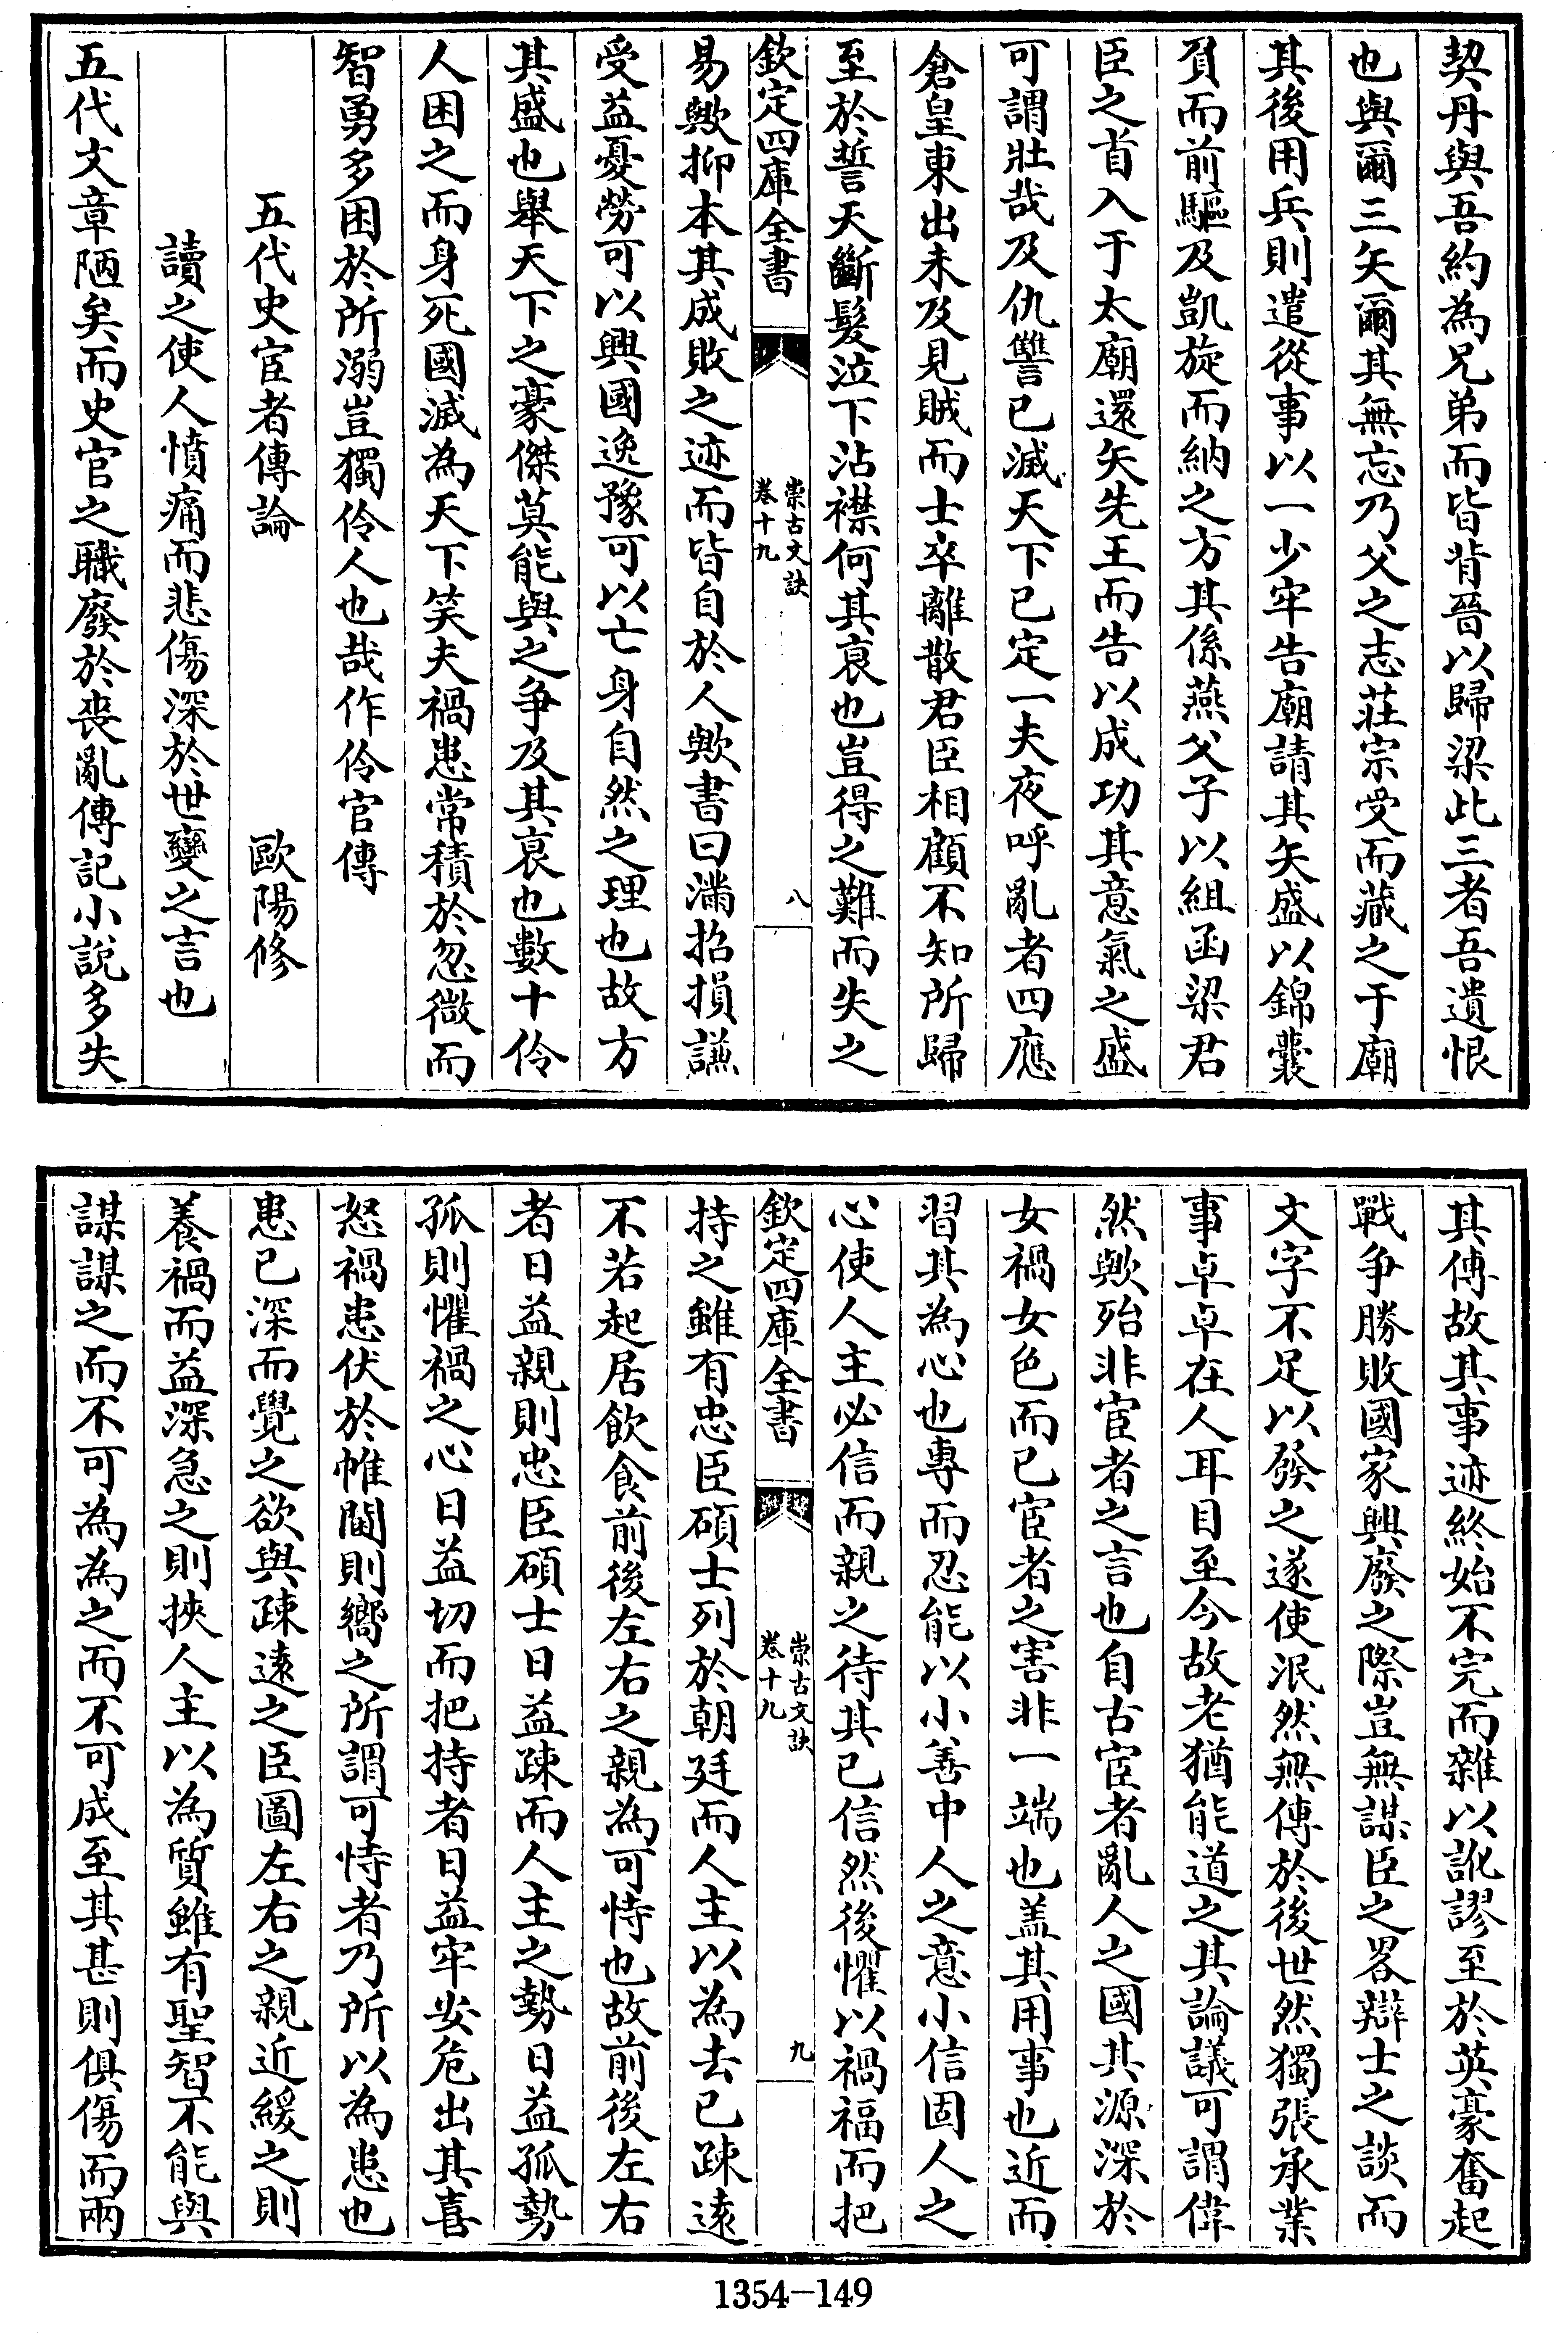 契丹與吾約為兄弟而皆背晉以歸梁此三者吾遺恨
也與爾三矢爾其無忘乃父之志莊宗受而藏之于廟
其後用兵則遣從事以一少牢告廟請其矢盛以錦囊
負而前驅及凱旋而納之方其係燕父子以組函梁君
臣之首入于太廟還矢先王而告以成功其意氣之盛
可謂壯哉及仇讐已滅天下已定一夫夜呼亂者四應
倉皇東出未及見賊而士卒離散君臣相顧不知所歸
至於誓天斷髮泣下沾襟何其衰也豈得之難而失之
欽定四庫全書
崇古文訣
卷十九
八
易歟抑本其成敗之迹而皆自於人歟書曰滿招損謙
受益憂勞可以興國逸豫可以亡身自然之理也故方
其盛也舉天下之豪傑莫能與之争及其衰也數十伶
人困之而身死國滅為天下笑夫禍患常積於忽微而
智勇多困於所溺豈獨伶人也哉作伶官傳
五代史宦者傳論 歐陽修
讀之使人憤痛而悲傷深於世變之言也
五代文章陋矣而史官之職廢於喪亂傳記小說多失
其傳故其事迹終始不完而雜以訛謬至於英豪奮起
戰争勝敗國家興廢之際豈無謀臣之畧辯士之談而
文字不足以發之遂使泯然無傳於後世然獨張承業
事卓卓在人耳目至今故老猶能道之其論議可謂偉
然歟殆非宦者之言也自古宦者亂人之國其源深於
女禍女色而已宦者之害非一端也盖其用事也近而
習其為心也專而忍能以小善中人之意小信固人之
心使人主必信而親之待其已信然後懼以禍福而把
欽定四庫全書
崇古文訣
卷十九
九
持之雖有忠臣碩士列於朝廷而人主以為去已疎遠
不若起居飲食前後左右之親為可恃也故前後左右
者日益親則忠臣碩士日益疎而人主之勢日益孤勢
孤則懼禍之心日益切而把持者日益牢安危出其喜
怒禍患伏於帷闥則嚮之所謂可恃者乃所以為患也
患已深而覺之欲與疎遠之臣圖左右之親近緩之則
養禍而益深急之則挾人主以為質雖有聖智不能與
謀謀之而不可為為之而不可成至其甚則俱傷而兩
1354—149